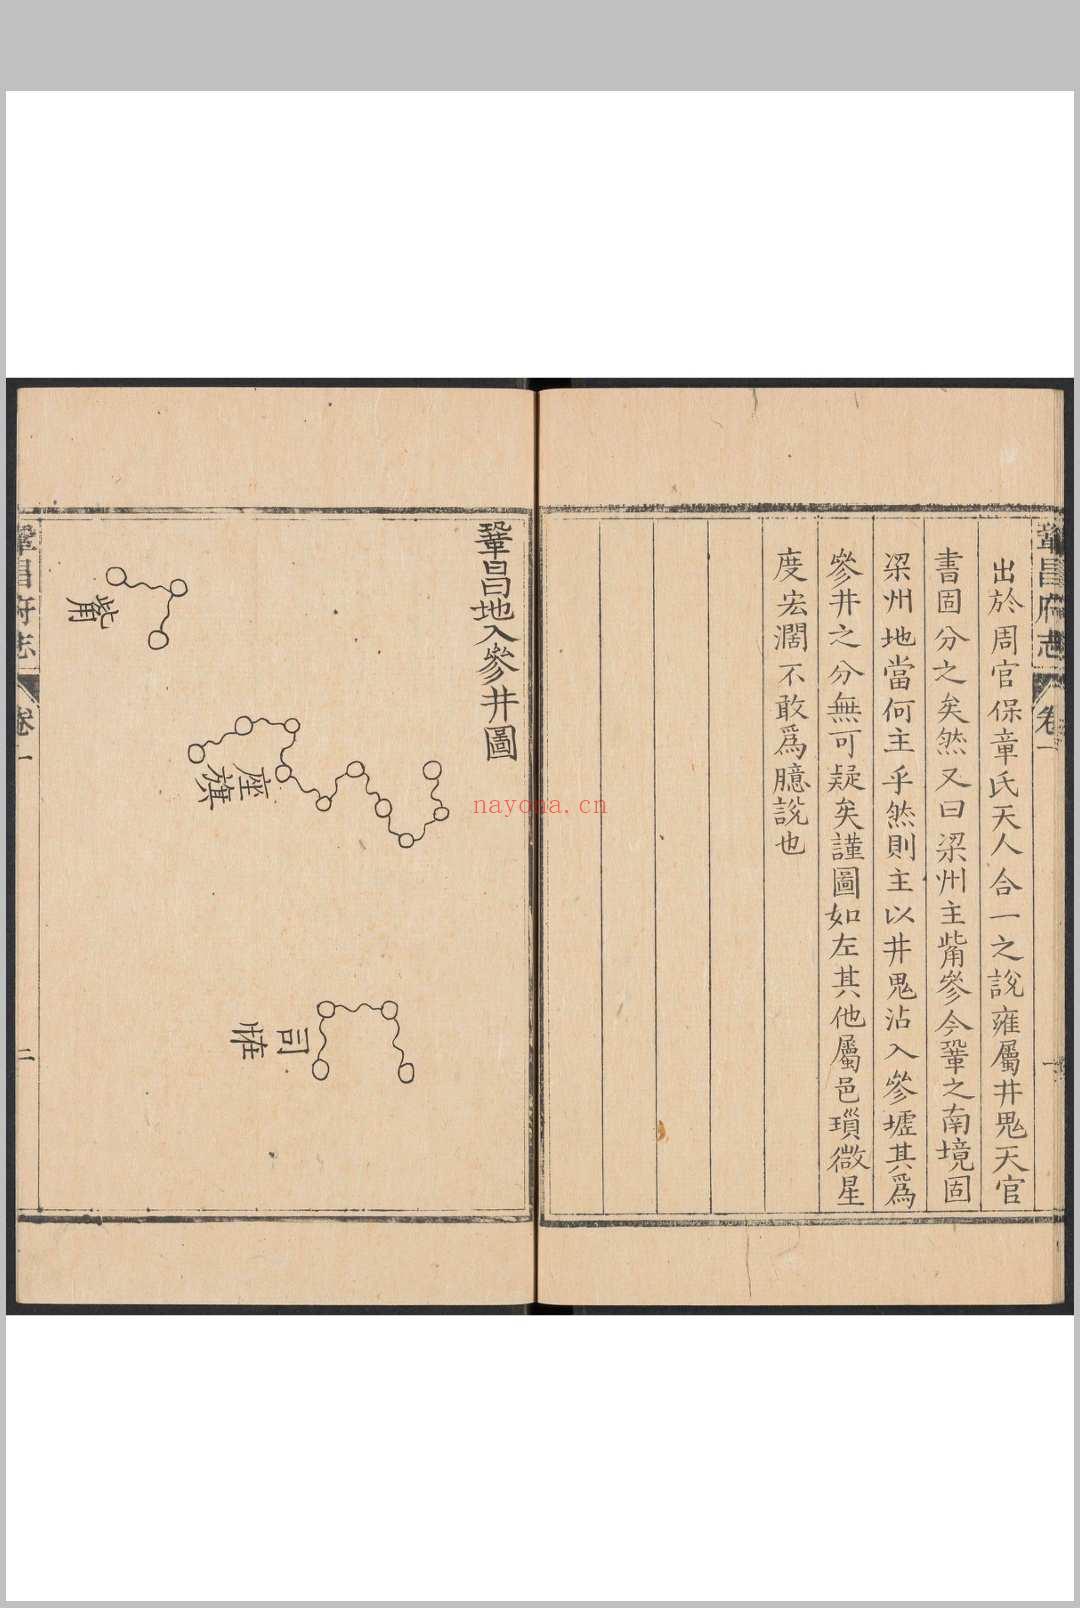 鞏昌府志
卷一
一
出於周官保章氏天人合一之説雍屬井鬼天官
書固分之矣然又曰梁州主觜參今鞏之南境固
梁州地當何主乎然則主以井鬼沾入參墟其爲
參井之分無可疑矣謹圖如左其他屬邑瑣微星
度宏濶不敢爲臆説也
鞏昌地入參井圖
司
怪
座
旗
觜
鞏昌府志
卷一
二
nayona.cn